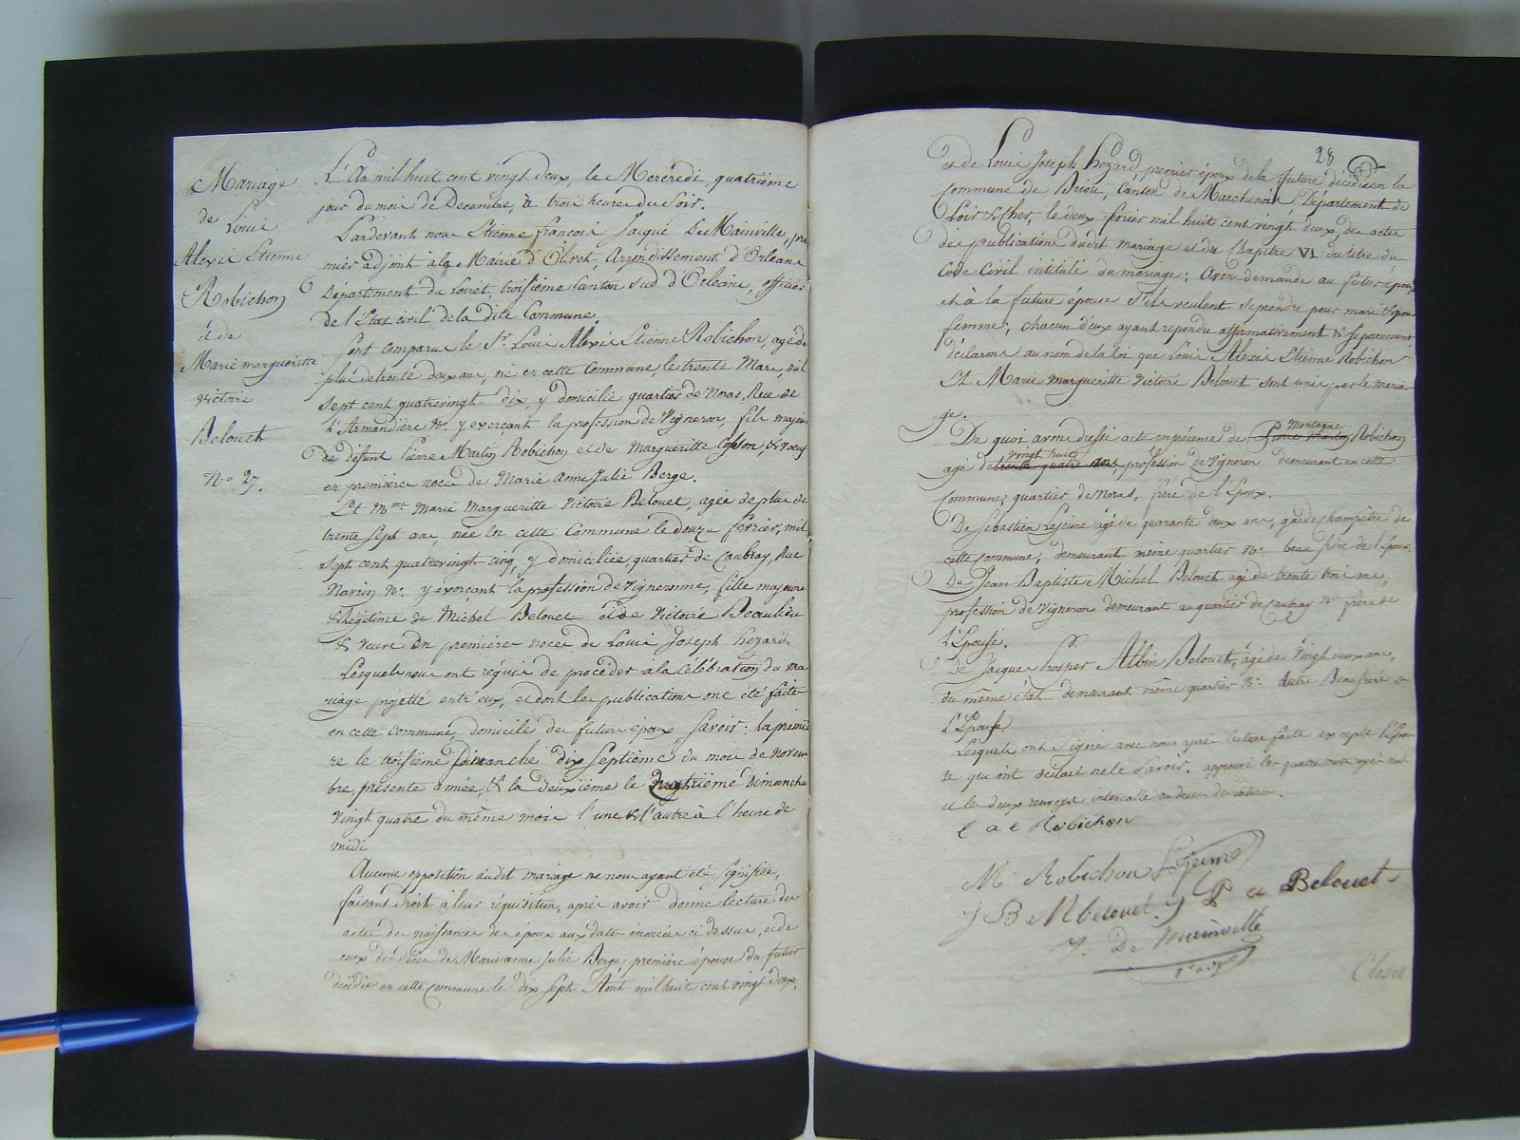 Mariage
de Louis
Alexis Etienne
Robichon
et de
Marie margueritte
victoire
Belouet
N.o 27.
L'An mil huit cent vingt deux, le Mercredi quatrième
jour du mois de Decembre, à trois heures du soir.
Pardevant nous Etienne françois Jaque De Mainville, pre
mier adjoint à la Mairie d'Olivet, Arrondissement d'Orleans
Département du Loiret, troisième Canton sud d'Orleans, officier
de l'Etat civil de la dite Commune.
sont comparus le Sr. Louis Alexis Etienne Robichon, agé de
plus de trente deux ans, né en cette Commune, le trente Mars, mil
sept cent quatrevingt dix, y domicilié quartier de Noras, Rue de
l'Armandière No. y exerçant la profession de Vigneron, fils majeur
de défunt Pierre Martin Robichon et de Margueritte Cosson, & veuf
en premières noces de Marie Anne Julie Berge.
Et Me. Marie Margueritte Victoire Belouet, agée de plus de
trente sept ans, née en cette Commune le douze fevrier, mil
sept cent quatrevingt cinq, y domiciliée quartier de Caubray, Rue
No. y exerçant la profession de Vigneronne, fille majeure
& légitime de Michel Belouet et de Victoire Beaulieu
& veuve en premières noces de Louis Joseph hozard.
Lesquels nous ont réquis de procéder à la célébration du ma
riage projetté entr'eux, et dont les publications ont été faites
en cette commune, domicile des futurs époux Savoir: la premiè
re le troisième dimanche dix Septième du mois de Novem
bre, présente année, & la deuxième le Dimanche
vingt quatre du même mois l'une & l'autre à l'heure de
midi
Aucune opposition audit mariage ne nous ayant été signifiée,
faisant droit à leur réquisition, après avoir donné lecture des
actes de naissances des époux aux dates énoncées ci dessus, et de
ceux de décès de Marie anne Julie Berge, première épouse du futur
décédée en cette commune le dix sept Aout mil huit cent vingt deux,
28
et de Louis Joseph hozard, premier époux de la future, décédé en la
Commune de Canton de Marchenoir Departement de
Loir & Cher, le deux fevrier mil huit cent vingt deux, des actes
de publications dudit mariage et du Chapitre VI du titre du
Code Civil intitulé du mariage; Avons demandé au futur époux
et à la future épouse s'ils veulent se prendre pour mari & pour
femme; chacun d'eux ayant repondu affirmativement & séparement
déclarons au nom de la loi que Louis Alexis Etienne Robichon
Et Marie margueritte Victoire Belouet sont unis par le maria
ge.
Montagne
De quoi avons dressé acte en présence de Pierre Martin Robichon
vingt huit
agé de trente quatre ans, profession de Vigneron demeurant en cette
Commune, quartier de Noras, frère de l'Epoux.
De Sébastien Lejeune agé de quarante deux ans, garde champêtre de
cette commune; demeurant même quartier No. beau frère de l'Epoux.
De Jean Baptiste Michel Belouet agé de trente trois ans,
profession de Vigneron demeurant au quartier de Caubray No. frère de
l'Epouse.
De Jacque Prosper Albin Belouet, agé de Vingt ans,
du même état demeurant même quartier No. Autre frère de
l'Epouse
Lesquels ont signé avec nous après lecture faite excepté l'Epou
se qui ont déclaré ne le Savoir. approuvé les quatre mots rayés nuls
et les deux renvois intercallés au dessus de
l a e Robichon
M Robichon Lejeune
J B M belouet J P a Belouet
De Mainville